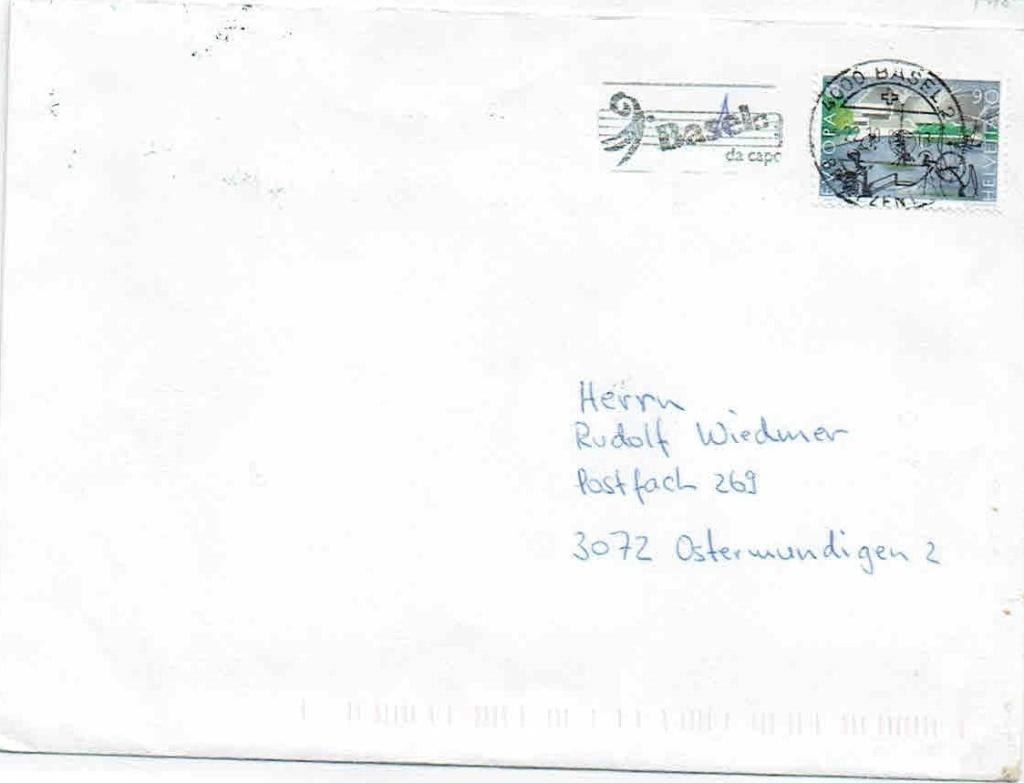 4000 BASEL 2
Basel
da capo
EUROPA
90
HELVETIA
Herrn
Rudolf Wiedmer
Postfach 269
3072 Ostermundigen 2